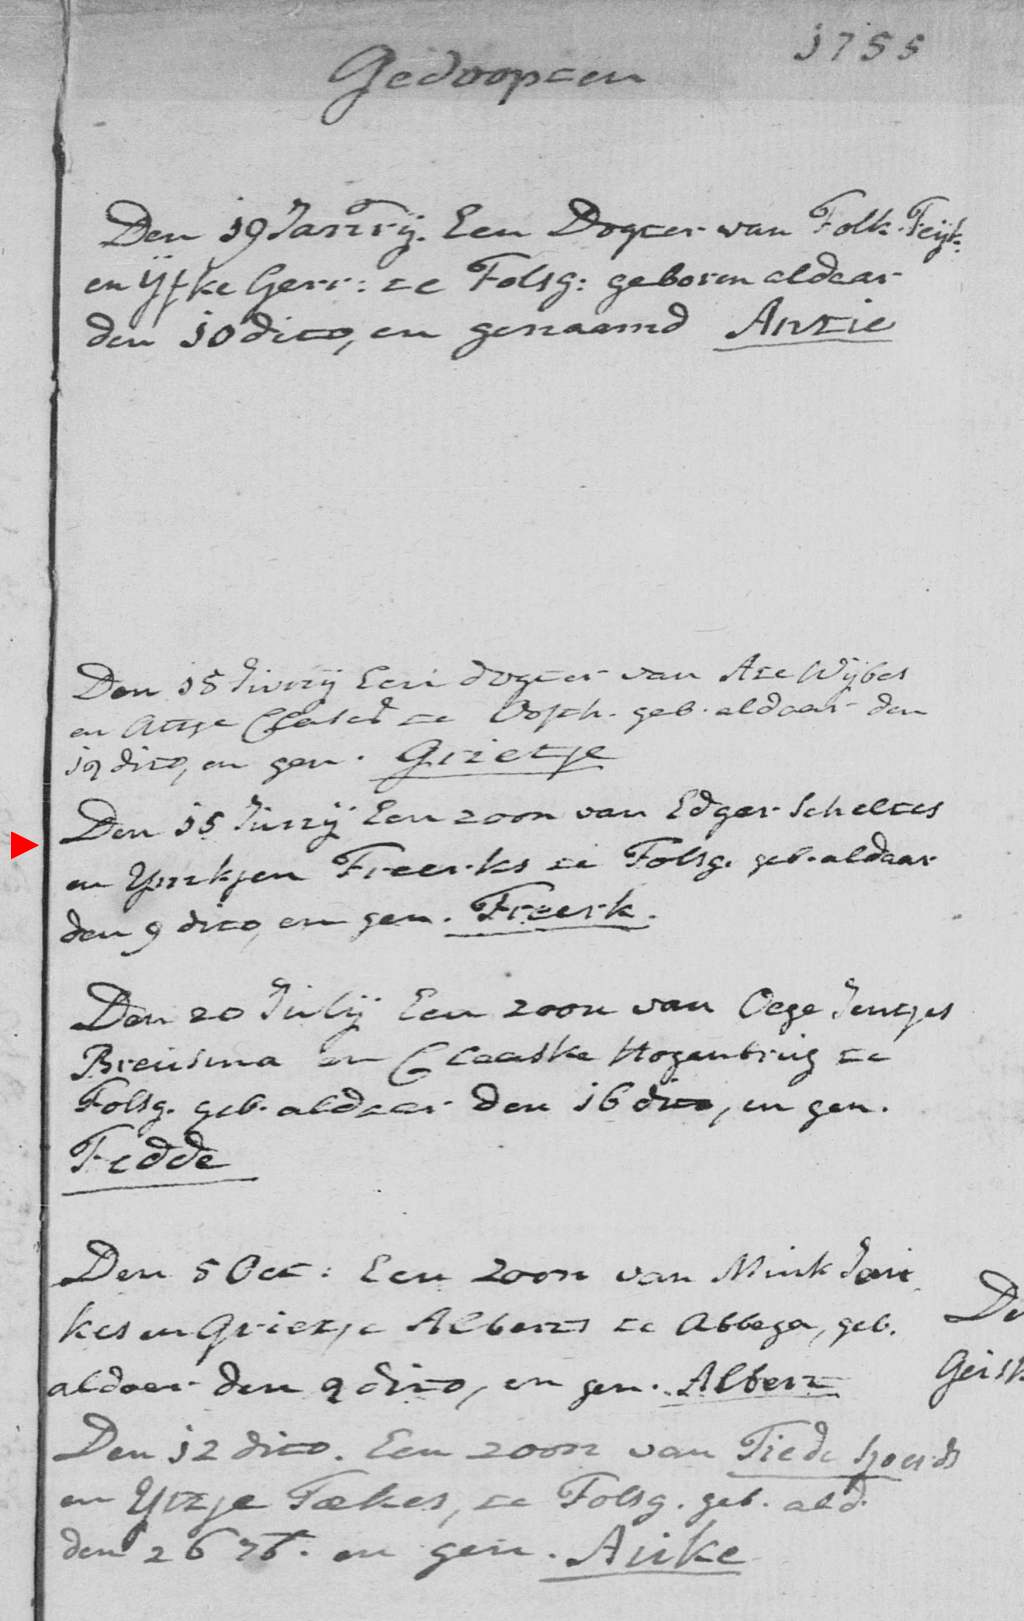 1755
Gedoopten
Den 19 Janrij. Een Dogter van Folk. Feijk.
en Yfke Gerr: te Folsg: geboren aldaar
den 10 dito, en genaamd Antie
Den 15 Junij Een dogter van Ate Wijbes
en Attje Clases te Oosth. geb. aldaar den
dito, en gen. Grietje
Den 15 Junij Een zoon van Edger Scheltes
en Ymkjen Freerks te Folsg. geb. aldaar
den 9 dito, en gen. Freerk.
Den 20 Julij Een zoon van Oege Jentjes
Breusma en Claaske Hogenbrug te
Folsg. geb. aldaar den 16 dito, en gen.
Fedde
Den 5 Oct: Een Zoon van Mink Jan
kes en Grietje Alberts te Abbega, geb.
De
aldaer den 2 dito, en gen. Albert
Geisk
Den 12 dito. Een zoon van Tiede Sjoerds
en Ytzje Tækes, te Folsg. geb. ald.
den 26 7b. en gen. Auke